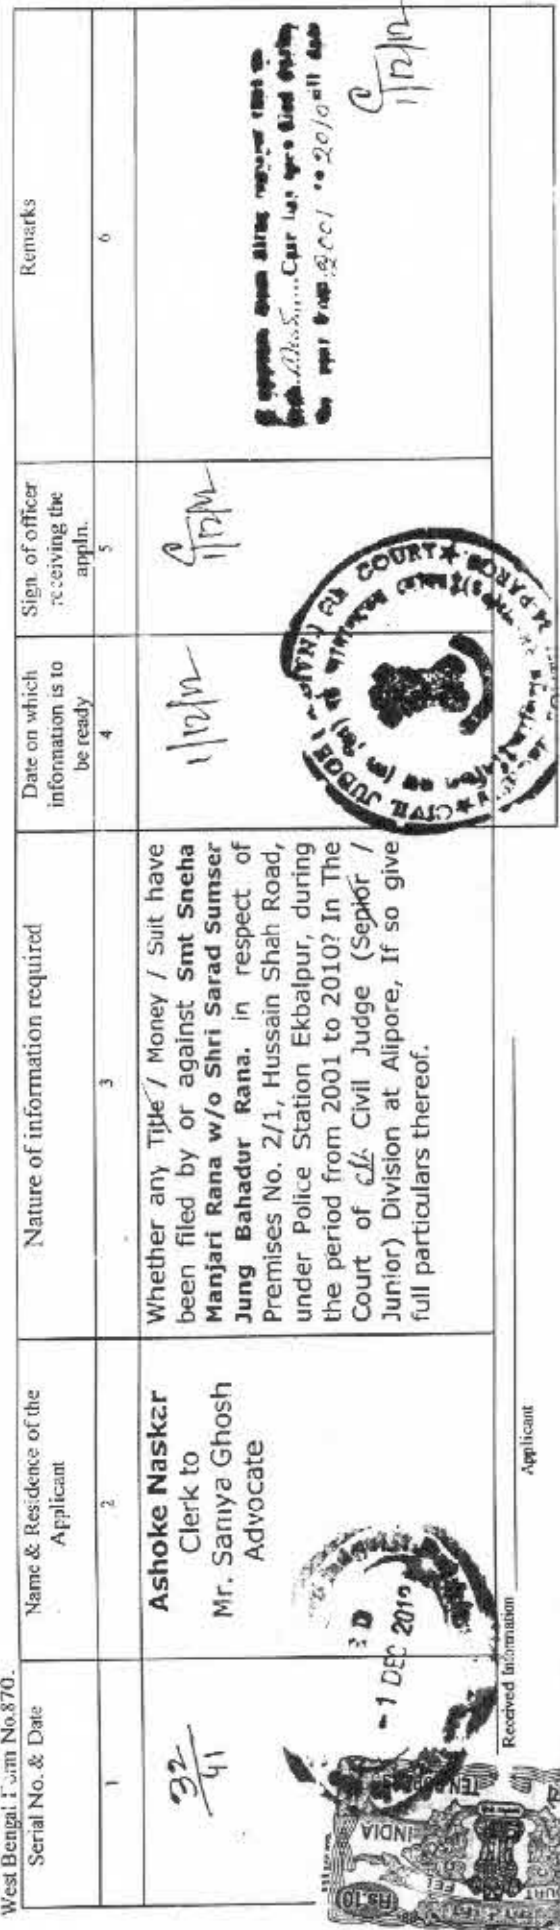 West Bengal Form No.870.
Serial No. & Date
Name & Residence of the
Applicant
Nature of information required
Date on which
information is to
be ready
Sign. of officer
receiving the
appln.
Remarks
1
2
3
4
5
6
32/41
Ashoke Naskar
Clerk to
Mr. Samya Ghosh
Advocate
Whether any Title / Money / Suit have
been filed by or against Smt Sneha
Manjari Rana w/o Shri Sarad Sumser
Jung Bahadur Rana. in respect of
Premises No. 2/1, Hussain Shah Road,
under Police Station Ekbalpur, during
the period from 2001 to 2010? In The
Court of Civil Judge (Senior /
Junior) Division at Alipore, If so give
full particulars thereof.
1/12/12
1/12/12
from 2001 to 2010
1/12/12
CIVIL JUDGE
COURT
PARGS
-1 DEC 201
INDIA
Rs.10
Received Information
Applicant